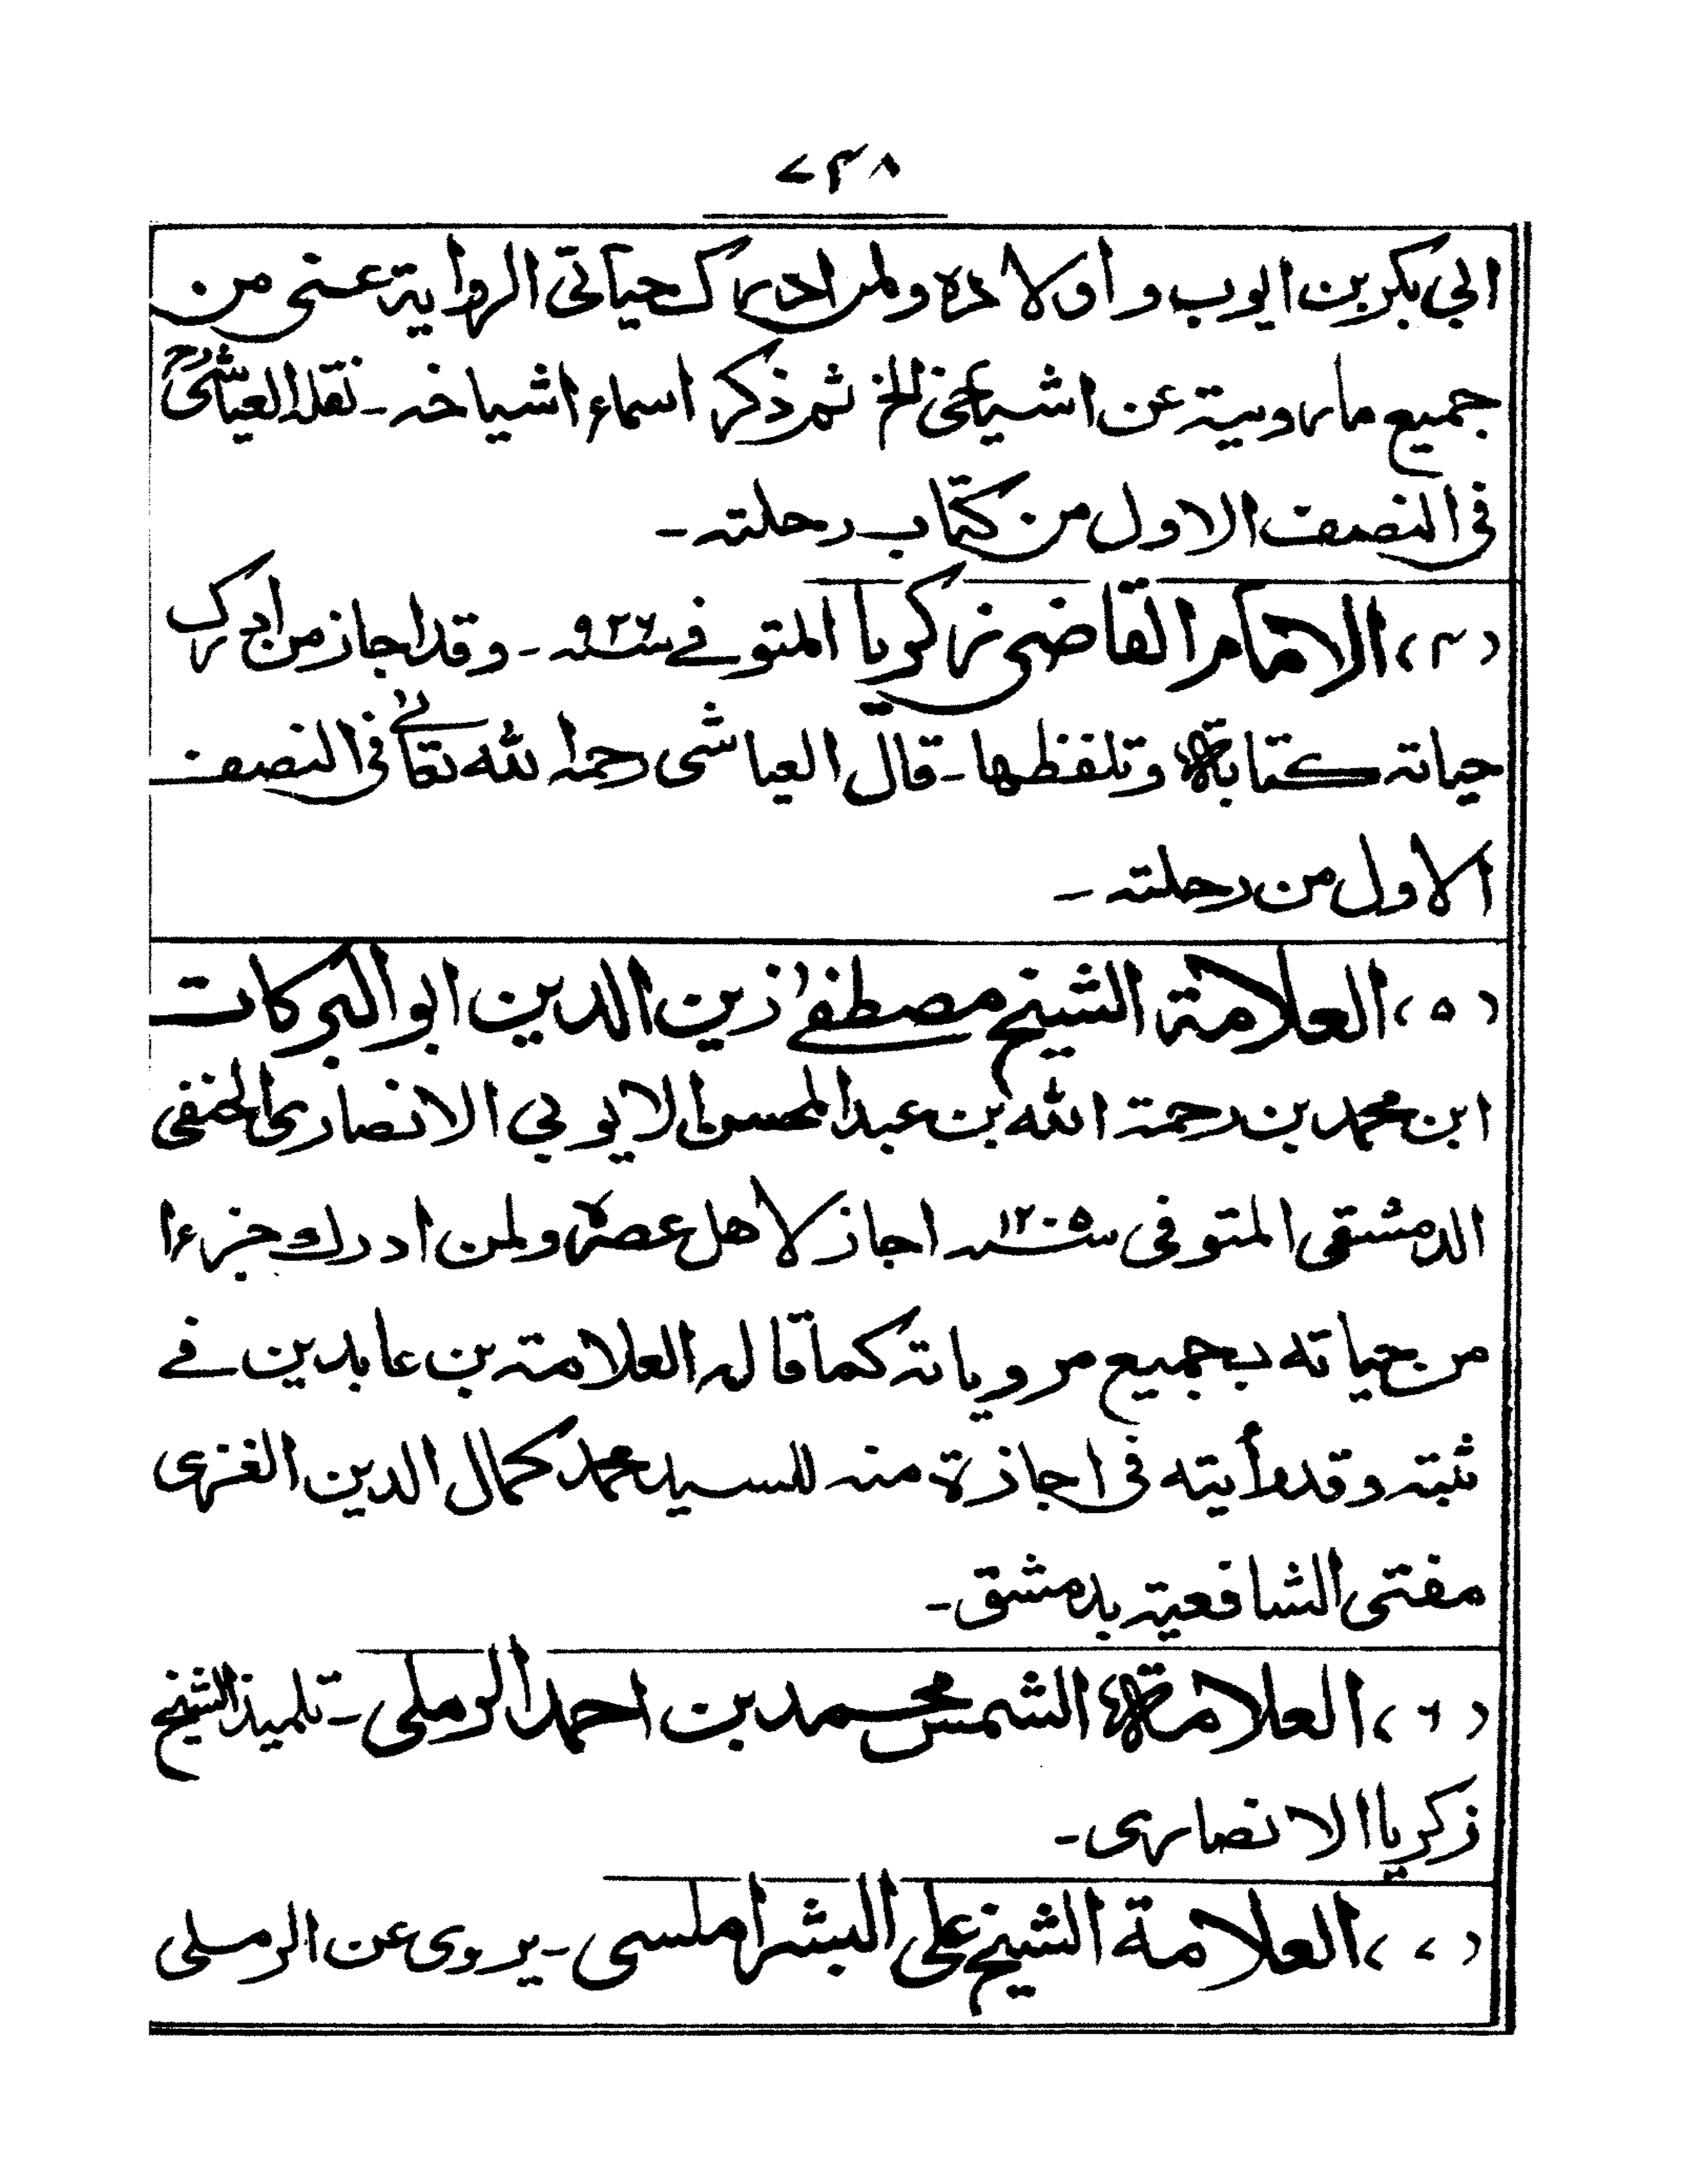 ۷۴۸
ابي بكر بن ايوب و أولاده ولمن ادرك حياتى الرواية عنى من
جميع ما رويته عن اشياخى الخ ثم ذكر اسماء اشياخه ـ نقله العياشىؒ
فى النصف الاول من كتاب رحلته ـ
(۴) الامام القاضى زكريا المتوفے سنه ٩٢٦ ـ وقد اجاز من ادرك
حياته كتابةً وتلفظها ـ قال العياشى رحمه الله تعالٰے فى النصف
الاول من رحلته ـ
(٥) العلامة الشيخ مصطفےٰ زين الدين ابو البركات
ابن محمد بن رحمة الله بن عبد المحسن الايوبي الانصارى الحنفى
الدمشقى المتوفى سنه ١٢٠٥ اجاز لاهل عصره ولمن ادرك جزءا
من حياته بجميع مروياته كما قاله العلامة بن عابدين فے
ثبته وقد رأيته فى اجازة منه للسيد محمد كمال الدين الغزى
مفتى الشافعية بدمشق ـ
(٦) العلامة الشمس محمد بن احمد الرملى ـ تلميذ الشيخ
زكريا الانصارى ـ
(۷) العلامة الشيخ على البشراملسى ـ يروى عن الرملى